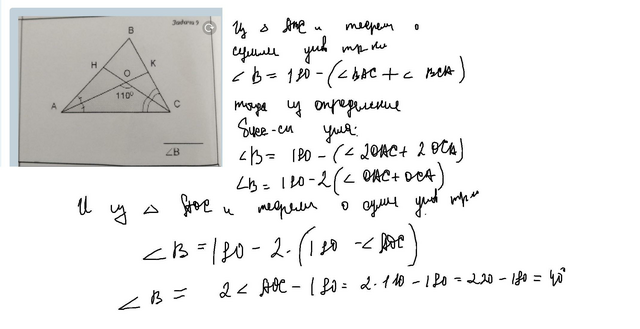 Задача 9
B
H
K
O
110°
A
C
∠B
Из △ ABC и теорем о
сумме углов тр-ка
∠B = 180 - (∠BAC + ∠ BCA)
тогда из определение
бисс-сы угла:
∠B = 180 - (∠ 2OAC + 2 OCA)
∠B = 180 - 2 (∠ OAC + OCA)
И из △ AOC и теорем о сумме углов тр-ка
∠B = 180 - 2 · (180 - ∠ AOC)
∠B = 2 ∠ AOC - 180 = 2 · 110 - 180 = 220 - 180 = 40°